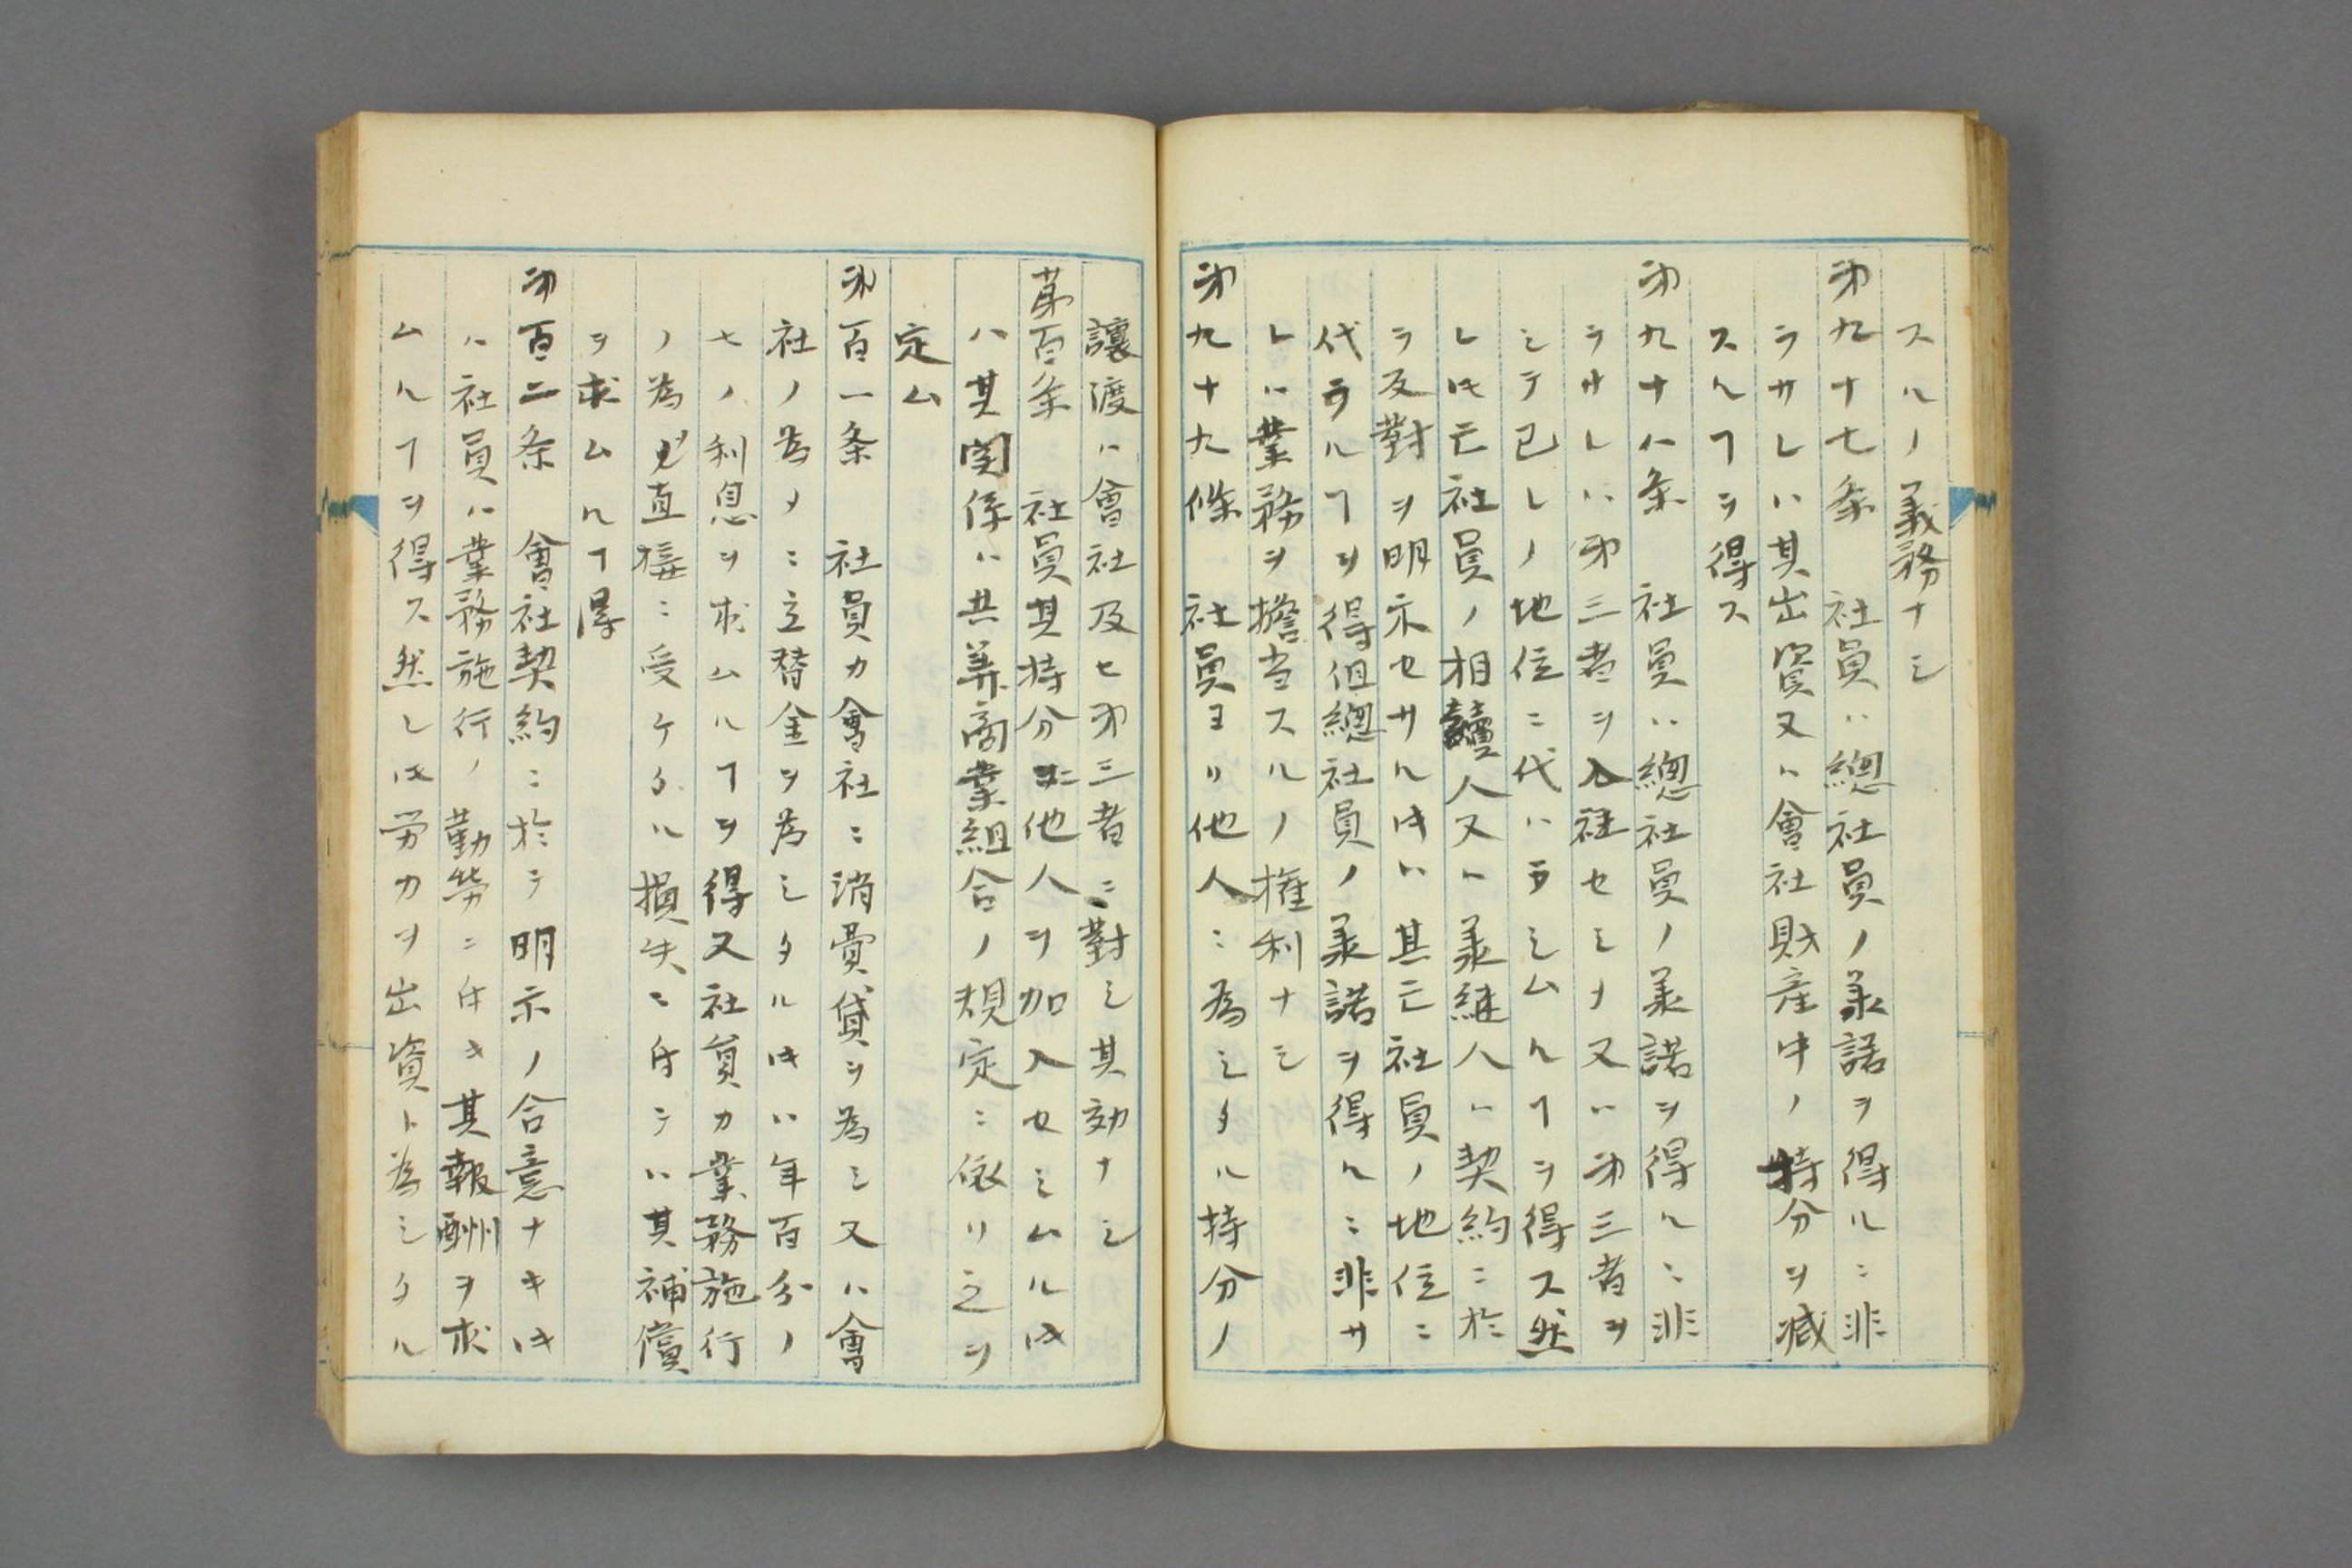 スルノ義務ナシ
第九十七条　社員ハ總社員ノ承諾ヲ得ルニ非
ラサレハ其出資又ハ會社財産中ノ持分ヲ減
スルヿヲ得ス
第九十八条　社員ハ總社員ノ承諾ヲ得ルニ非
ラサレハ第三者ヲ入社セシメ又ハ第三者ヲ
シテ己レノ地位ニ代ハラシムルヿヲ得ス然
レ𪜈亡社員ノ相續人又ハ承継人ハ契約ニ於
テ反對ヲ明示セサル𪜈ハ其亡社員ノ地位ニ
代ラルヿヲ得但總社員ノ承諾ヲ得ルニ非サ
レハ業務ヲ擔当スルノ権利ナシ
第九十九條　社員ヨリ他人ニ為シタル持分ノ
讓渡ハ會社及ヒ第三者ニ對シ其効ナシ
第百条　社員其持分ニ他人ヲ加入セシムル𪜈
ハ其関係ハ共算商業組合ノ規定ニ依リ之ヲ
定ム
第百一条　社員カ會社ニ消費貸ヲ為シ又ハ會
社ノ為メニ立替金ヲ為シタル𪜈ハ年百分ノ
七ノ利息ヲ求ムルヿヲ得又社員カ業務施行
ノ為メ直接ニ受ケタル損失ニ付テハ其補償
ヲ求ムルヿ得
第百二条　會社契約ニ於テ明示ノ合意ナキ𪜈
ハ社員ハ業務施行ノ勤勞ニ付キ其報酬ヲ求
ムルヿヲ得ス然レ𪜈労力ヲ出資ト為シタル